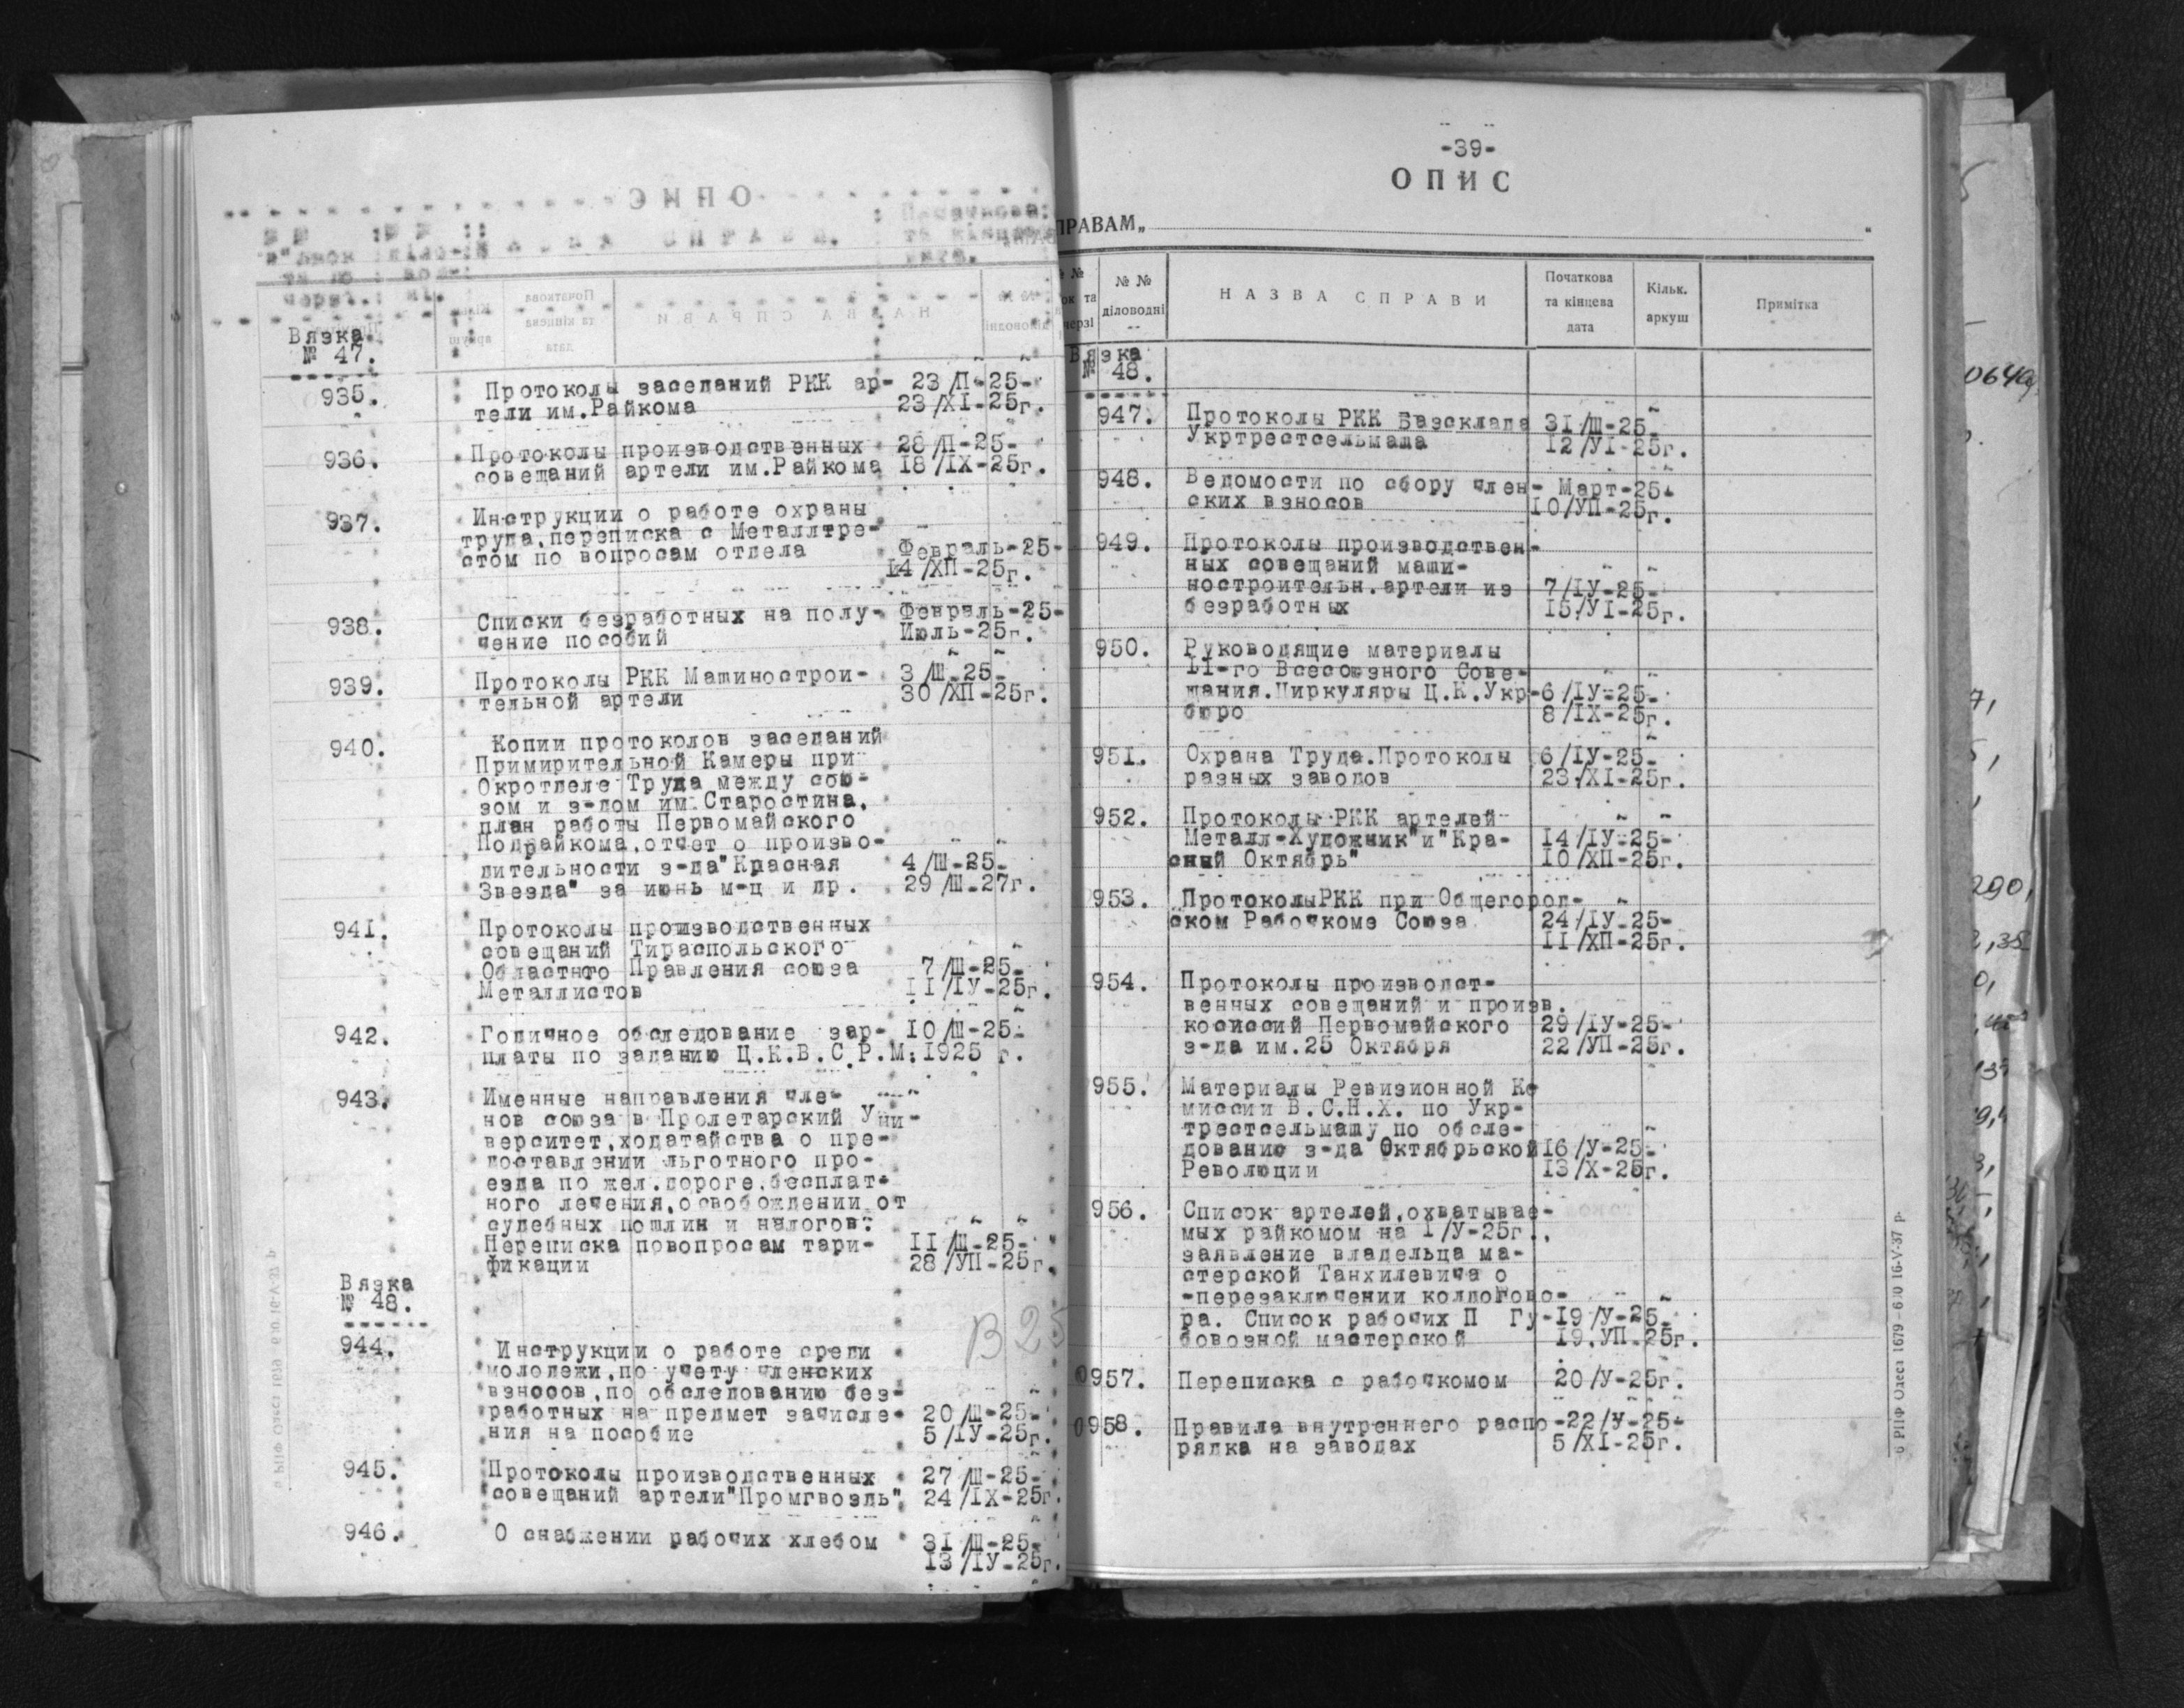 Вязка
№ 47.
935. Протоколы заседаний РКК ар- 23/П-25-
тели им.Райкома 23/XI-25г.
936. Протоколы производственных 28/П-25-
совещаний артели им.Райкома 18/IX-25г.
937. Инструкции о работе охраны
труда,переписка с Металлтре-
стом по вопросам отдела Февраль-25-
14/ХП-25г.
938. Списки безработных на полу- Февраль-25-
чение пособий Июль-25г.
939. Протоколы РКК Машинострои- 3/Ш-25-
тельной артели 30/ХП-25г.
940. Копии протоколов заседаний
Примирительной Камеры при
Окротделе Труда между сою-
зом и з-дом им.Старостина,
план работы Первомайского
Подрайкома,отчет о произво-
дительности з-да"Красная 4/Ш-25-
Звезда" за июнь м-ц и др. 29/Ш-27г.
941. Протоколы производственных
совещаний Тираспольского
Областного Правления союза 7/Ш-25-
Металлистов 11/IУ-25г.
942. Годичное обследование зар- 10/Ш-25-
платы по заданию Ц.К.В.С.Р.М: 1925 г.
943. Именные направления чле-
нов союза в Пролетарский Уни-
верситет,ходатайства о пре-
доставлении льготного про-
езда по жел.дороге,бесплат-
ного лечения,освобождении от
судебных пошлин и налогов.
Переписка повопросам тари- 11/Ш-25-
фикации 28/УП-25г.
Вязка
№ 48.
944. Инструкции о работе среди
молодежи,по учету членских
взносов,по обследованию без-
работных на предмет зачисле- 20/Ш-25-
ния на пособие 5/IУ-25г.
945. Протоколы производственных 27/Ш-25-
совещаний артели"Промгвоздь" 24/IX-25г.
946. О снабжении рабочих хлебом 31/Ш-25-
13/IУ-25г.
В 25
-39-
ОПИС
ПРАВАМ„
№ № ок та черзі
№ № діловодні
НАЗВА СПРАВИ
Початкова та кінцева дата
Кільк. аркуш
Примітка
Вязка
№ 48.
947. Протоколы РКК Базсклада 31/Ш-25-
Укртрестсельмаша 12/УI-25г.
948. Ведомости по сбору член- Март-25-
ских взносов 10/УП-25г.
949. Протоколы производствен-
ных совещаний маши-
ностроительн.артели из 7/IУ-25-
безработных 15/УI-25г.
950. Руководящие материалы
11-го Всесоюзного Сове-
щания.Циркуляры Ц.К.Укр- 6/IУ-25-
бюро 8/IX-25г.
951. Охрана Труда.Протоколы 6/IУ-25-
разных заводов 23/XI-25г.
952. Протоколы РКК артелей
Металл-Художник"и"Кра- 14/IУ-25-
сный Октябрь" 10/ХП-25г.
953. ПротоколыРКК при Общегород-
ском Рабочкоме Союза 24/IУ-25-
11/ХП-25г.
954. Протоколы производст-
венных совещаний и произв.
косиссий Первомайского 29/IУ-25-
з-да им.25 Октября 22/УП-25г.
955. Материалы Ревизионной Ко
миссии В.С.Н.Х. по Укр-
трестсельмашу по обсле-
дованию з-да Октябрьской 16/У-25-
Революции 13/X-25г.
956. Список артелей,охватывае-
мых райкомом на 1/У-25г.,
заявление владельца ма-
стерской Танхилевича о
-перезаключении колдогово-
ра. Список рабочих П Гу- 19/У-25-
бовозной мастерской 19.УП-25г.
0957. Переписка с рабочкомом 20/У-25г.
0958. Правила внутреннего распо- 22/У-25-
рядка на заводах 5/XI-25г.
6 РПФ Одеса 1679-600 16-V-37 р.